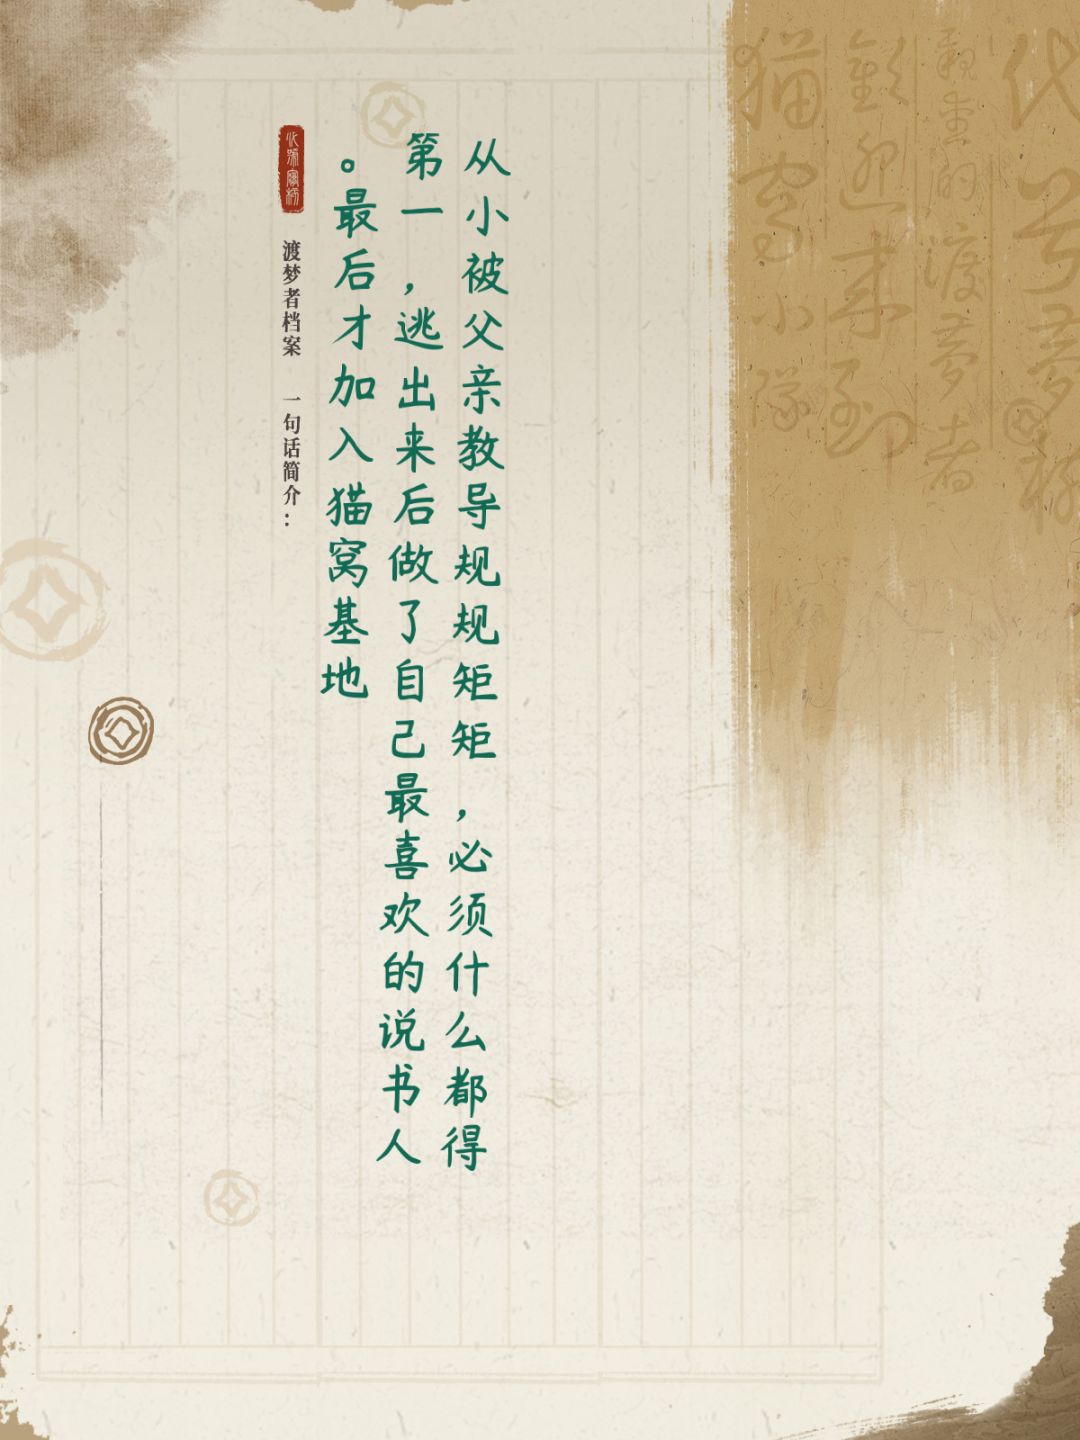 代号梦枕
亲爱的渡梦者
欢迎来到
猫窝小队
从小被父亲教导规规矩矩，必须什么都得
第一，逃出来后做了自己最喜欢的说书人
。最后才加入猫窝基地
渡梦者档案 一句话简介：